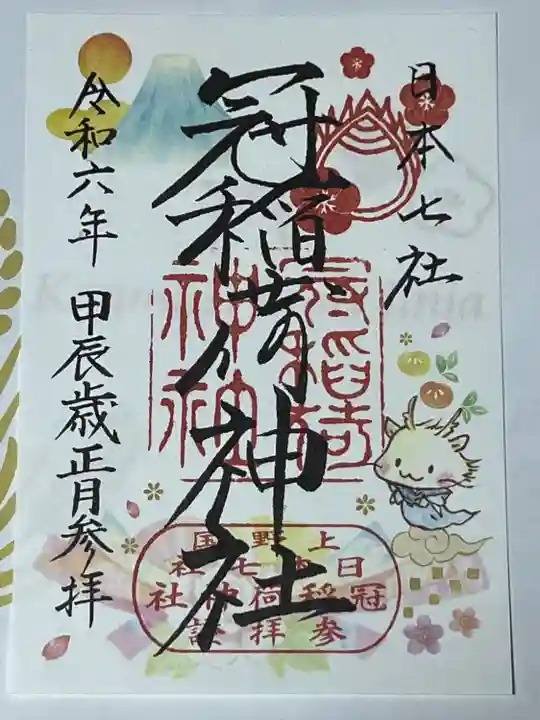 日本七社
冠稲荷神社
令和六年 甲辰歳正月参拝
冠稲荷
神社
上野国
日本七社
冠稲荷神社
参拝